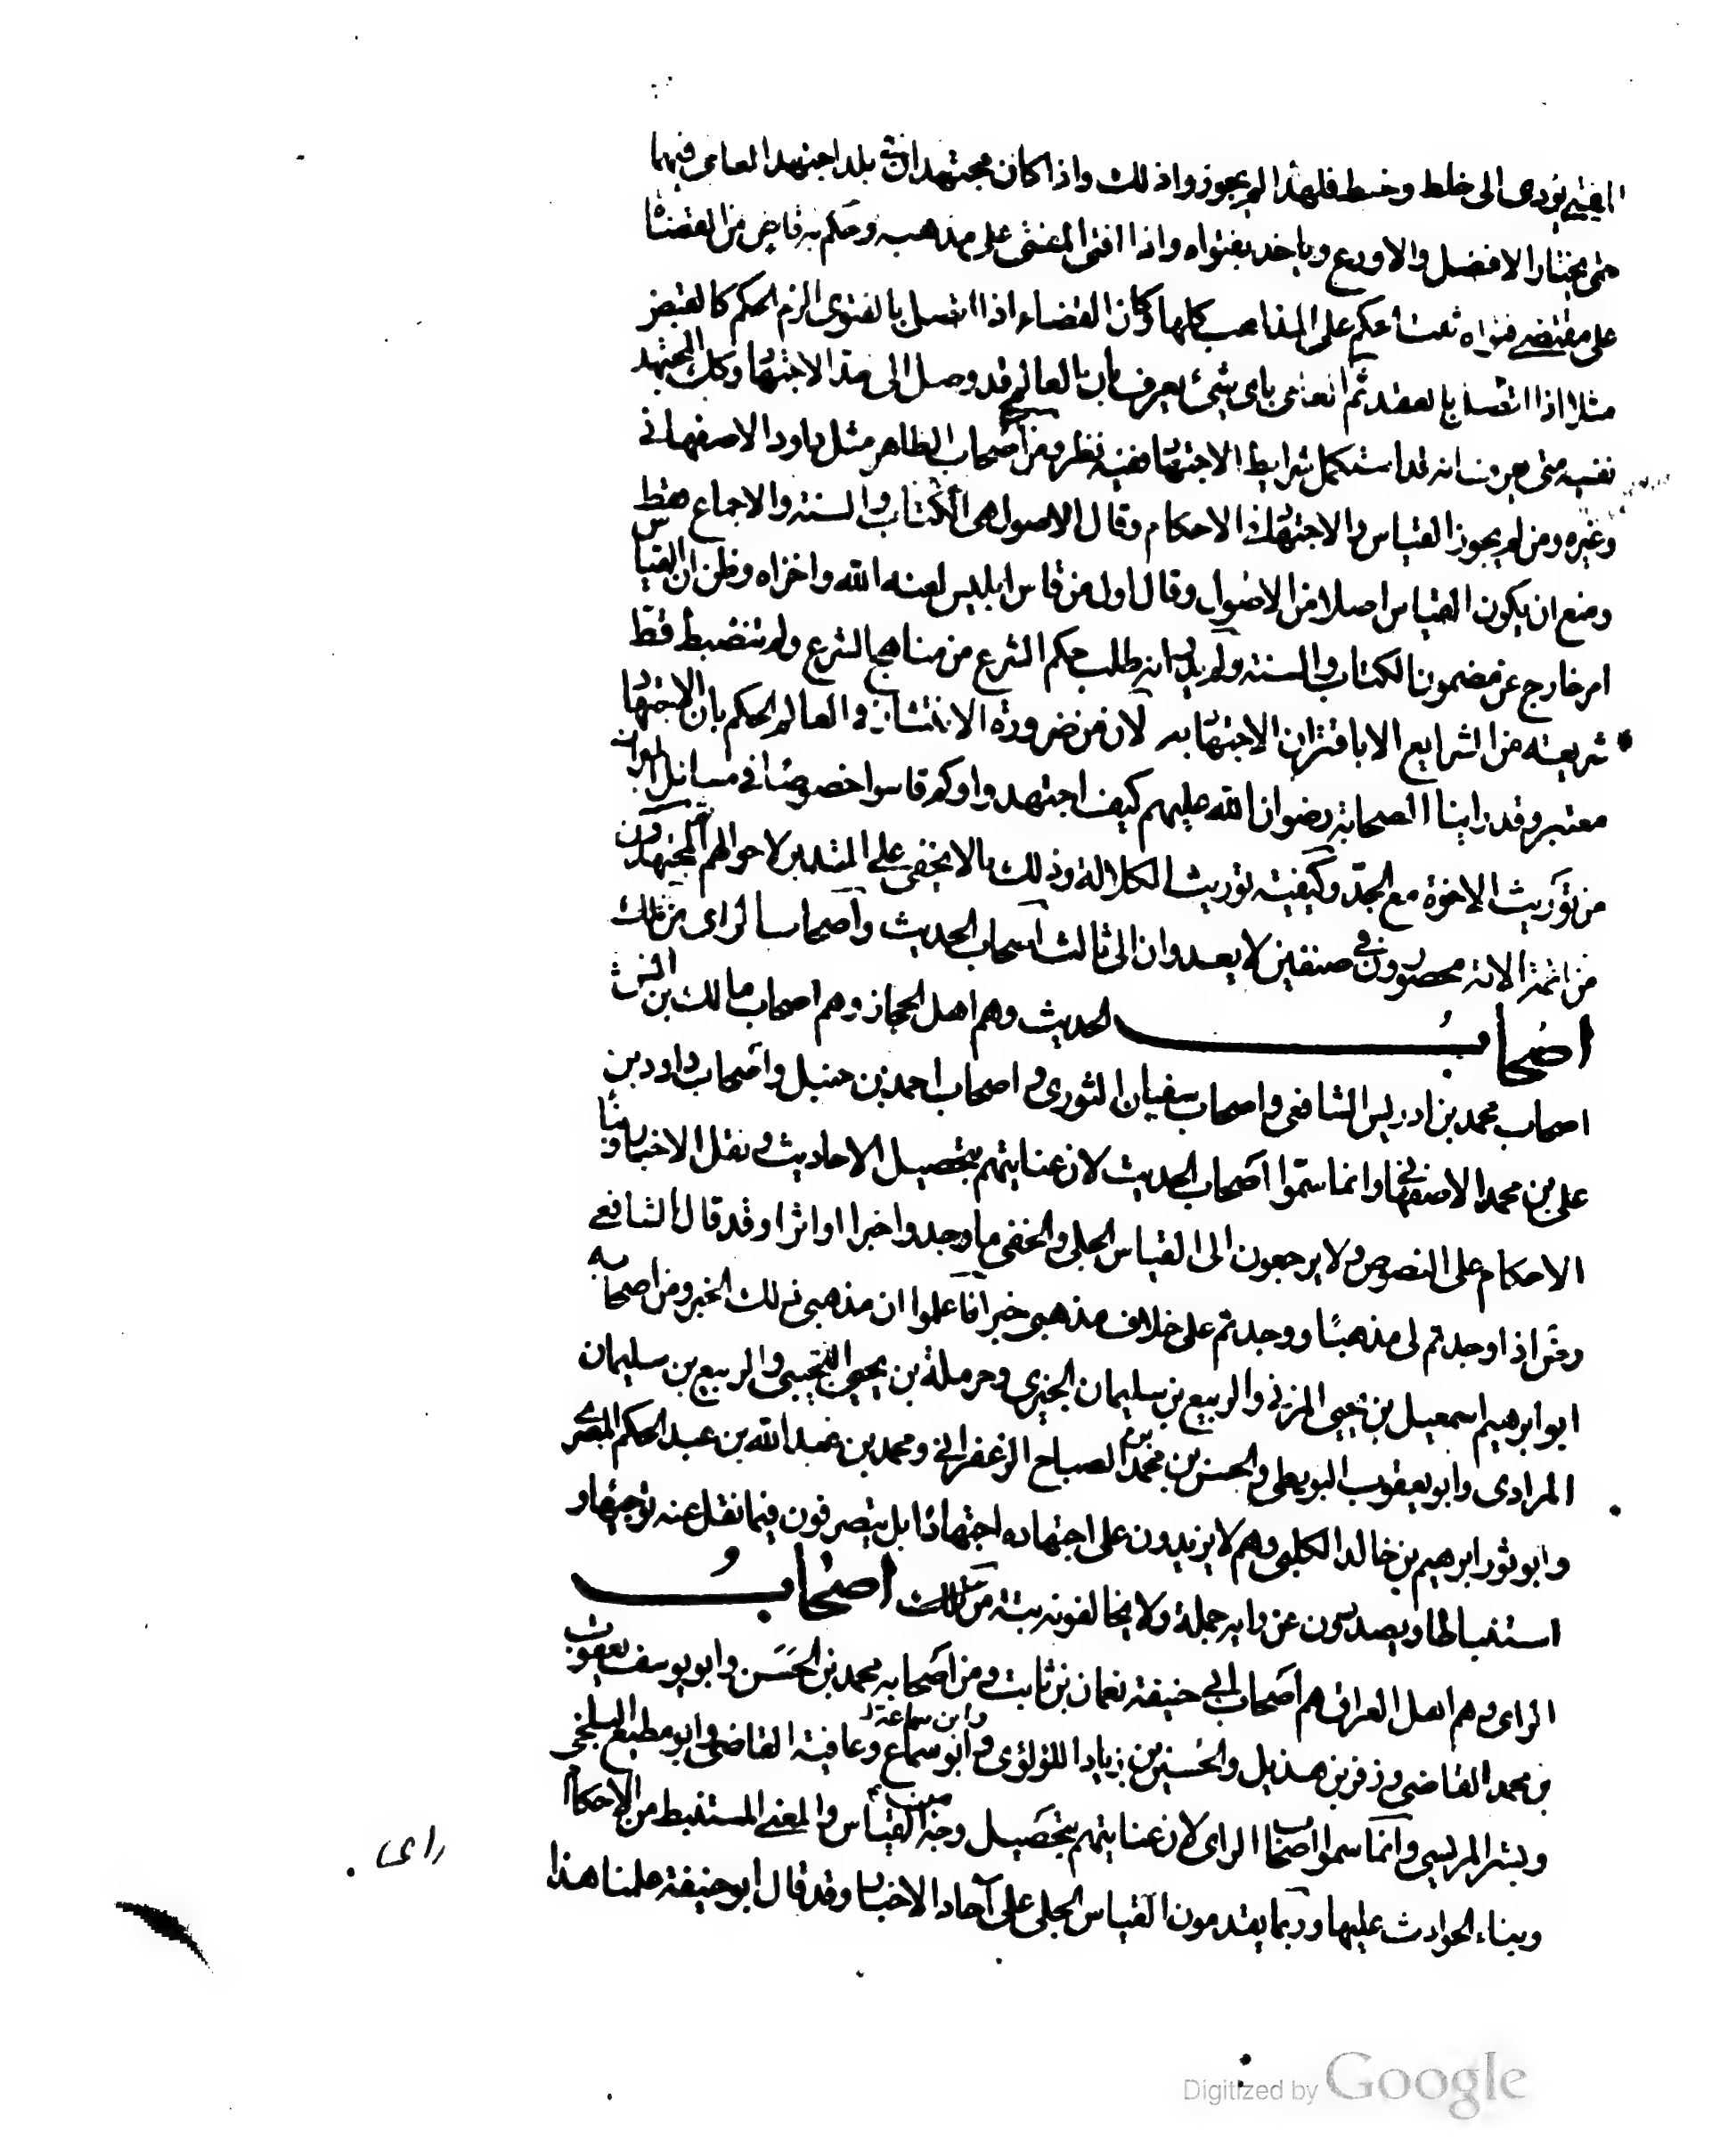 الفتيى يؤدى الى خلط وخبط فلهذا لم يجوزوا ذلك واذا كان مجتهدان فى بلد اجتهد العامى فيهما
حتى يختار الافضل والاورع وياخذ بفتواه واذا افتى المفتى على مذهبه وحكم به قاض من القضاة
على مقتضى فتواه ثبت الحكم على المذاهب كلها وكان القضاء اذا اتصل بالفتوى الزم الحكم كالقبض
مثلا اذا اتصل بالعقد ثم العامى باى شىء يعرف ان العالم قد وصل الى حد الاجتهاد وكذلك المجتهد
نفسه متى يعرف انه قد استكمل شرايط الاجتهاد ففيه نظر ومن اصحاب الظاهر مثل داود الاصفهانى
وغيره ومن لم يجوز القياس والاجتهاد فى الاحكام وقال الاصول هى الكتاب والسنة والاجماع فقط
ومنع ان يكون القياس اصلا من الاصول وقال اول من قاس ابليس لعنه الله واخزاه وظن ان القياس
امر خارج عن مضمون الكتاب والسنة ولم يدر انه طلب حكم الشرع من مناهج الشرع ولم تنضبط قط
شريعة من الشرايع الا باقتران الاجتهاد به لان من ضرورة الانتشار فى العالم الحكم بان الاجتهاد
معتبر وقد راينا الصحابة رضوان الله عليهم كيف اجتهدوا وكم قاسوا خصوصا فى مسائل المواريث
من توريث الاخوة مع الجد وكيفية توريث الكلالة وذلك مالا يخفى على المتدبر لاحوالهم ثم المجتهدون
من ائمة الامة محصورون فى صنفين لا يعدوان الى ثالث اصحاب الحديث واصحاب الراى من ذلك
اصحاب الحديث وهم اهل الحجاز وهم اصحاب مالك بن انس
اصحاب محمد بن ادريس الشافعى واصحاب سفيان الثورى واصحاب احمد بن حنبل واصحاب داود بن
على بن محمد الاصفهانى وانما سموا اصحاب الحديث لان عنايتهم بتحصيل الاحاديث ونقل الاخبار وبناء
الاحكام على النصوص ولا يرجعون الى القياس الجلى والخفى ما وجدوا خبرا او اثرا وقد قال الشافعى
رحمه اذا وجدتم لى مذهبا ووجدتم على خلاف مذهبى خبرا فاعلموا ان مذهبى ذلك الخبر ومن اصحابه
ابو ابرهيم اسمعيل بن يحيى المزنى والربيع بن سليمان الجيزى وحرملة بن يحيى التجيبى والربيع بن سليمان
المرادى وابو يعقوب البويطى والحسن بن محمد بن الصباح الزعفرانى ومحمد بن عبد الله بن عبد الحكم المصرى
وابو ثور ابرهيم بن خالد الكلبى وهم لا يزيدون على اجتهاده اجتهادا بل يتصرفون فيما نقل عنه توجيها و
استنباطا ويصدرون عن رايه جملة ولا يخالفونه بتة من ذلك اصحاب
الراى وهم اهل العراق هم اصحاب ابى حنيفة نعمان بن ثابت ومن اصحابه محمد بن الحسن وابو يوسف يعقوب
بن محمد القاضى وزفر بن هذيل والحسين بن زياد اللؤلؤى وابو سماع وابن سماعة وعافية القاضى وابو مطيع البلخى
وبشر المريسى وانما سموا اصحاب الراى لان عنايتهم بتحصيل وجه من القياس والمعنى المستنبط من الاحكام
وبناء الحوادث عليها وربما يقدمون القياس الجلى على آحاد الاخبار وقد قال ابو حنيفة علمنا هذا
راى
Digitized by Google